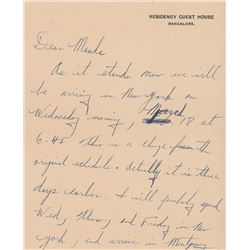 RESIDENCY GUEST HOUSE
BANGALORE.
Dear
As it stands now we will
be arriving in New York on
Wednesday morning, March 19 at
6:45. This is a change from the
original schedule & actually it is three
days earlier. I will probably spend
Wed, Thurs, and Friday in New
York, and arrive in Montgomery